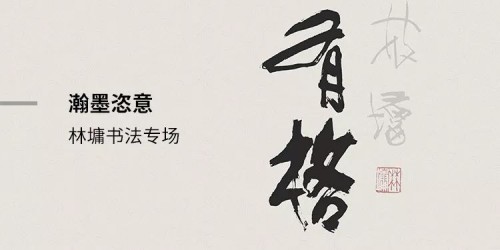 瀚墨恣意
林墉书法专场
有
格
林墉